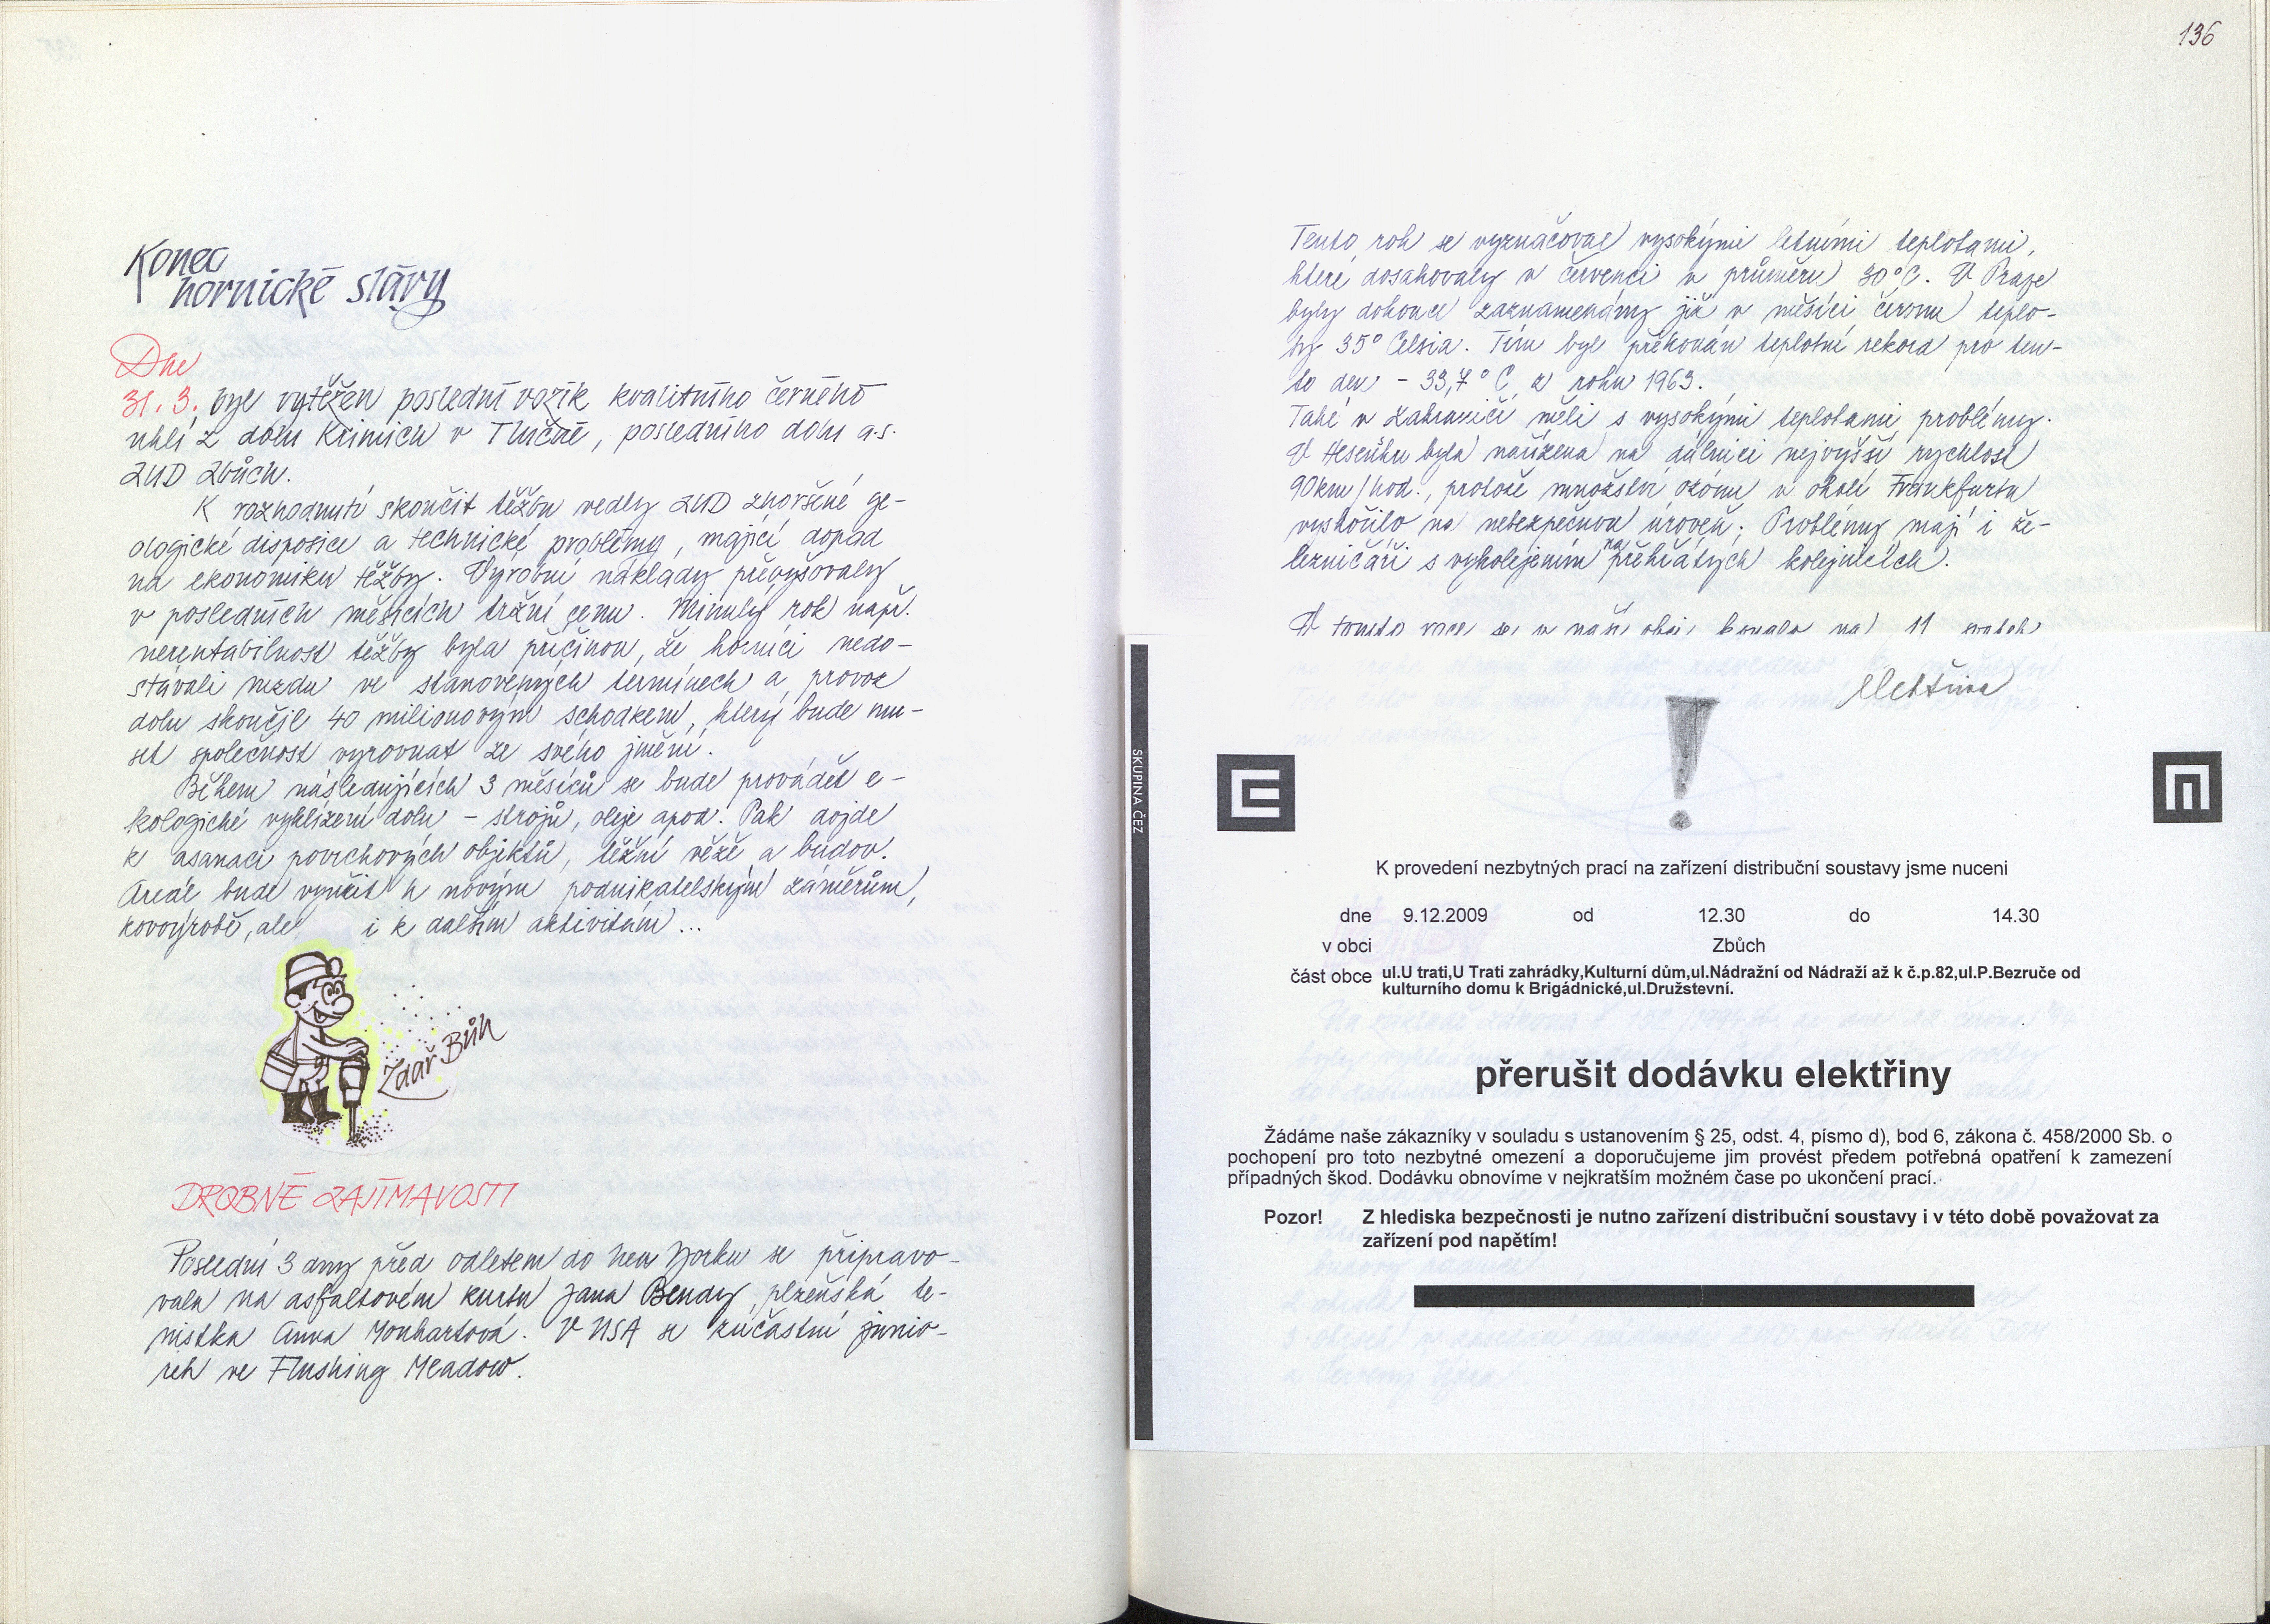 Konec
hornické slávy
Dne
31. 3. byl vytěžen poslední vozík kvalitního černého
uhlí z dolu Krimich v Tlučné, posledního dolu a.s.
ZUD Zbůch.
K rozhodnutí skončit těžbu vedly ZUD zhoršené ge-
ologické disposice a technické problémy, mající dopad
na ekonomiku těžby. Výrobní náklady převyšovaly
v posledních měsících tržní cenu. Minulý rok např.
nerentabilnost těžby byla příčinou, že horníci nedo-
stávali mzdu ve stanovených termínech a provoz
dolu skončil 40 milionovým schodkem, který bude mu-
set společnost vyrovnat ze svého jmění.
Během následujících 3 měsíců se bude provádět e-
kologické vyklizení dolu – strojů, oleje apod. Pak dojde
k asanaci povrchových objektů, těžní věže a budov.
Areál bude využit k novým podnikatelským záměrům,
kovovýrobě, ale i k dalším aktivitám ...
Zdař Bůh
DROBNÉ ZAJÍMAVOSTI
Poslední 3 dny před odletem do New Yorku se připravo-
vala na asfaltovém kurtu Jana Bendy plzeňská te-
nistka Anna Monhartová. V USA se zúčastní junio-
rek ve Flushing Meadow.
136
Tento rok se vyznačoval vysokými letními teplotami,
které dosahovaly v červenci v průměru 30°C. V Praze
byly dokonce zaznamenány již v měsíci červnu teplo-
ty 35° Celsia. Tím byl překonán teplotní rekord pro ten-
to den – 33,7°C z roku 1963.
Také v zahraničí měli s vysokými teplotami problémy.
V Hesensku byla nařízena na dálnici nejvyšší rychlost
90km/hod., protože množství ozónu v okolí Frankfurtu
vyskočilo na nebezpečnou úroveň; Problémy mají i že-
lezničáři s vykolejením na přehřátých kolejnicích.
V tomto roce se v naší obci konalo na 11 svateb
elektřina
!
SKUPINA ČEZ
K provedení nezbytných prací na zařízení distribuční soustavy jsme nuceni
dne 9.12.2009 od 12.30 do 14.30
v obci Zbůch
část obce ul.U trati,U Trati zahrádky,Kulturní dům,ul.Nádražní od Nádraží až k č.p.82,ul.P.Bezruče od
kulturního domu k Brigádnické,ul.Družstevní.
přerušit dodávku elektřiny
Žádáme naše zákazníky v souladu s ustanovením § 25, odst. 4, písmo d), bod 6, zákona č. 458/2000 Sb. o
pochopení pro toto nezbytné omezení a doporučujeme jim provést předem potřebná opatření k zamezení
případných škod. Dodávku obnovíme v nejkratším možném čase po ukončení prací.
Pozor! Z hlediska bezpečnosti je nutno zařízení distribuční soustavy i v této době považovat za
zařízení pod napětím!